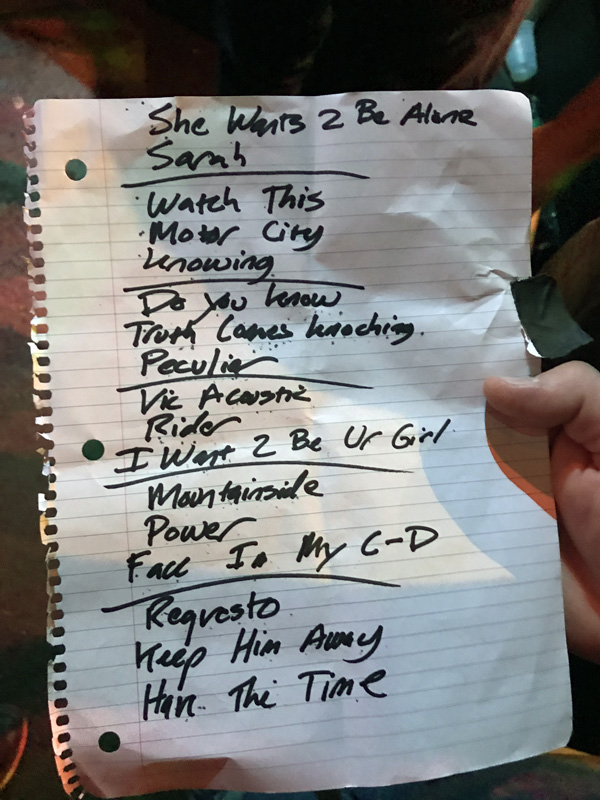 She Wants 2 Be Alone
Sarah
Watch This
Motor City
Knowing
Do you know
Truth Comes knocking.
Peculiar
Vic Acoustic
Rider
I Want 2 Be Ur Girl
Mountainside
Power
In My C-D
Keep Him Away
The Time